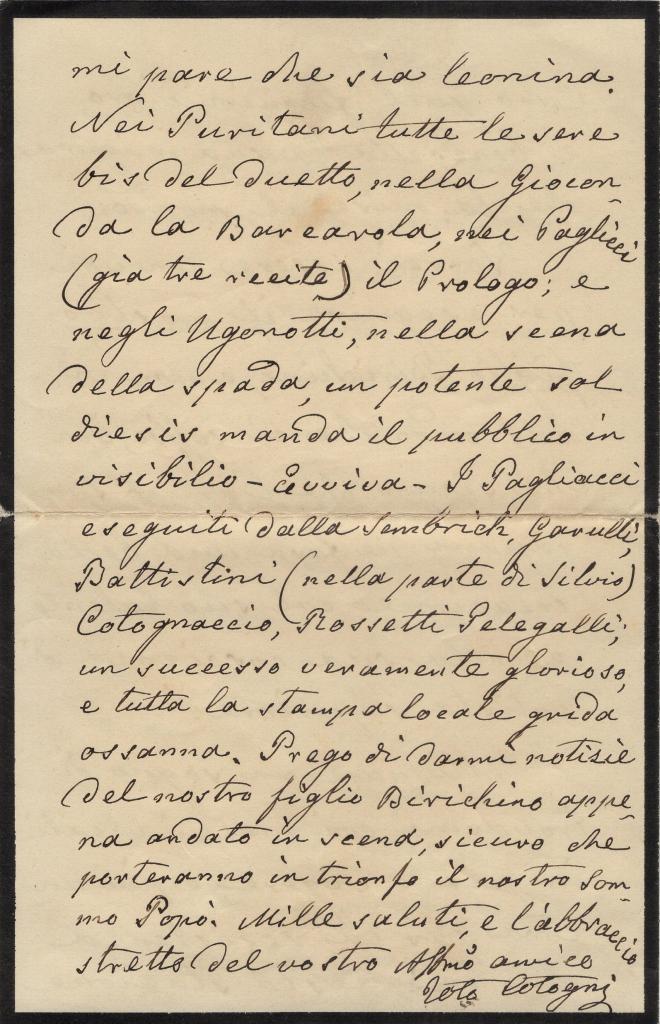 mi pare che sia leonina.
Nei Puritani tutte le sere
bis del duetto, nella Giocon-
da la Barcarola, nei Paglicci
(già tre recite) il Prologo; e
negli Ugonotti, nella scena
della spada, un potente sol
diesis manda il pubblico in
visibilio - Evviva - I Pagliacci
eseguiti dalla Sembrich, Garulli,
Battistini (nella parte di Silvio)
Cotognaccio, Rossetti Pelegalli;
un successo veramente glorioso,
e tutta la stampa locale grida
ossanna. Prego di darmi notizie
del nostro figlio Birichino appe-
na andato in scena, sicuro che
porteranno in trionfo il nostro Som-
mo Popò. Mille saluti, e l'abbraccio
stretto del vostro Affmo amico
Toto Cotogni